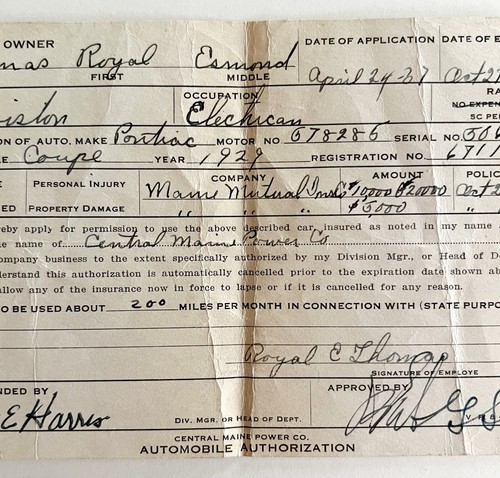 OWNER DATE OF APPLICATION DATE OF E
mas Royal Esmond April 24-37 Oct 27
FIRST MIDDLE
OCCUPATION RA
iston Electrican NO EXPEN
5C PER
ION OF AUTO. MAKE Pontiac MOTOR NO 678286 SERIAL NO. 506
E Coupe YEAR 1929 REGISTRATION NO. 6711
COMPANY AMOUNT POLIC
PERSONAL INJURY Maine Mutual Ins Co $10000 $20000 Oct 2
ED PROPERTY DAMAGE " " " $5000 "
eby apply for permission to use the above described car insured as noted in my name a
e name of Central Maine Power Co
ompany business to the extent specifically authorized by my Division Mgr., or Head of De
derstand this authorization is automatically cancelled prior to the expiration date shown ab
allow any of the insurance now in force to lapse or if it is cancelled for any reason.
O BE USED ABOUT 200 MILES PER MONTH IN CONNECTION WITH (STATE PURPO
Royal E Thomas
SIGNATURE OF EMPLOYE
NDED BY APPROVED BY
E Harris
DIV. MGR. OR HEAD OF DEPT. V. PRES
CENTRAL MAINE POWER CO.
AUTOMOBILE AUTHORIZATION